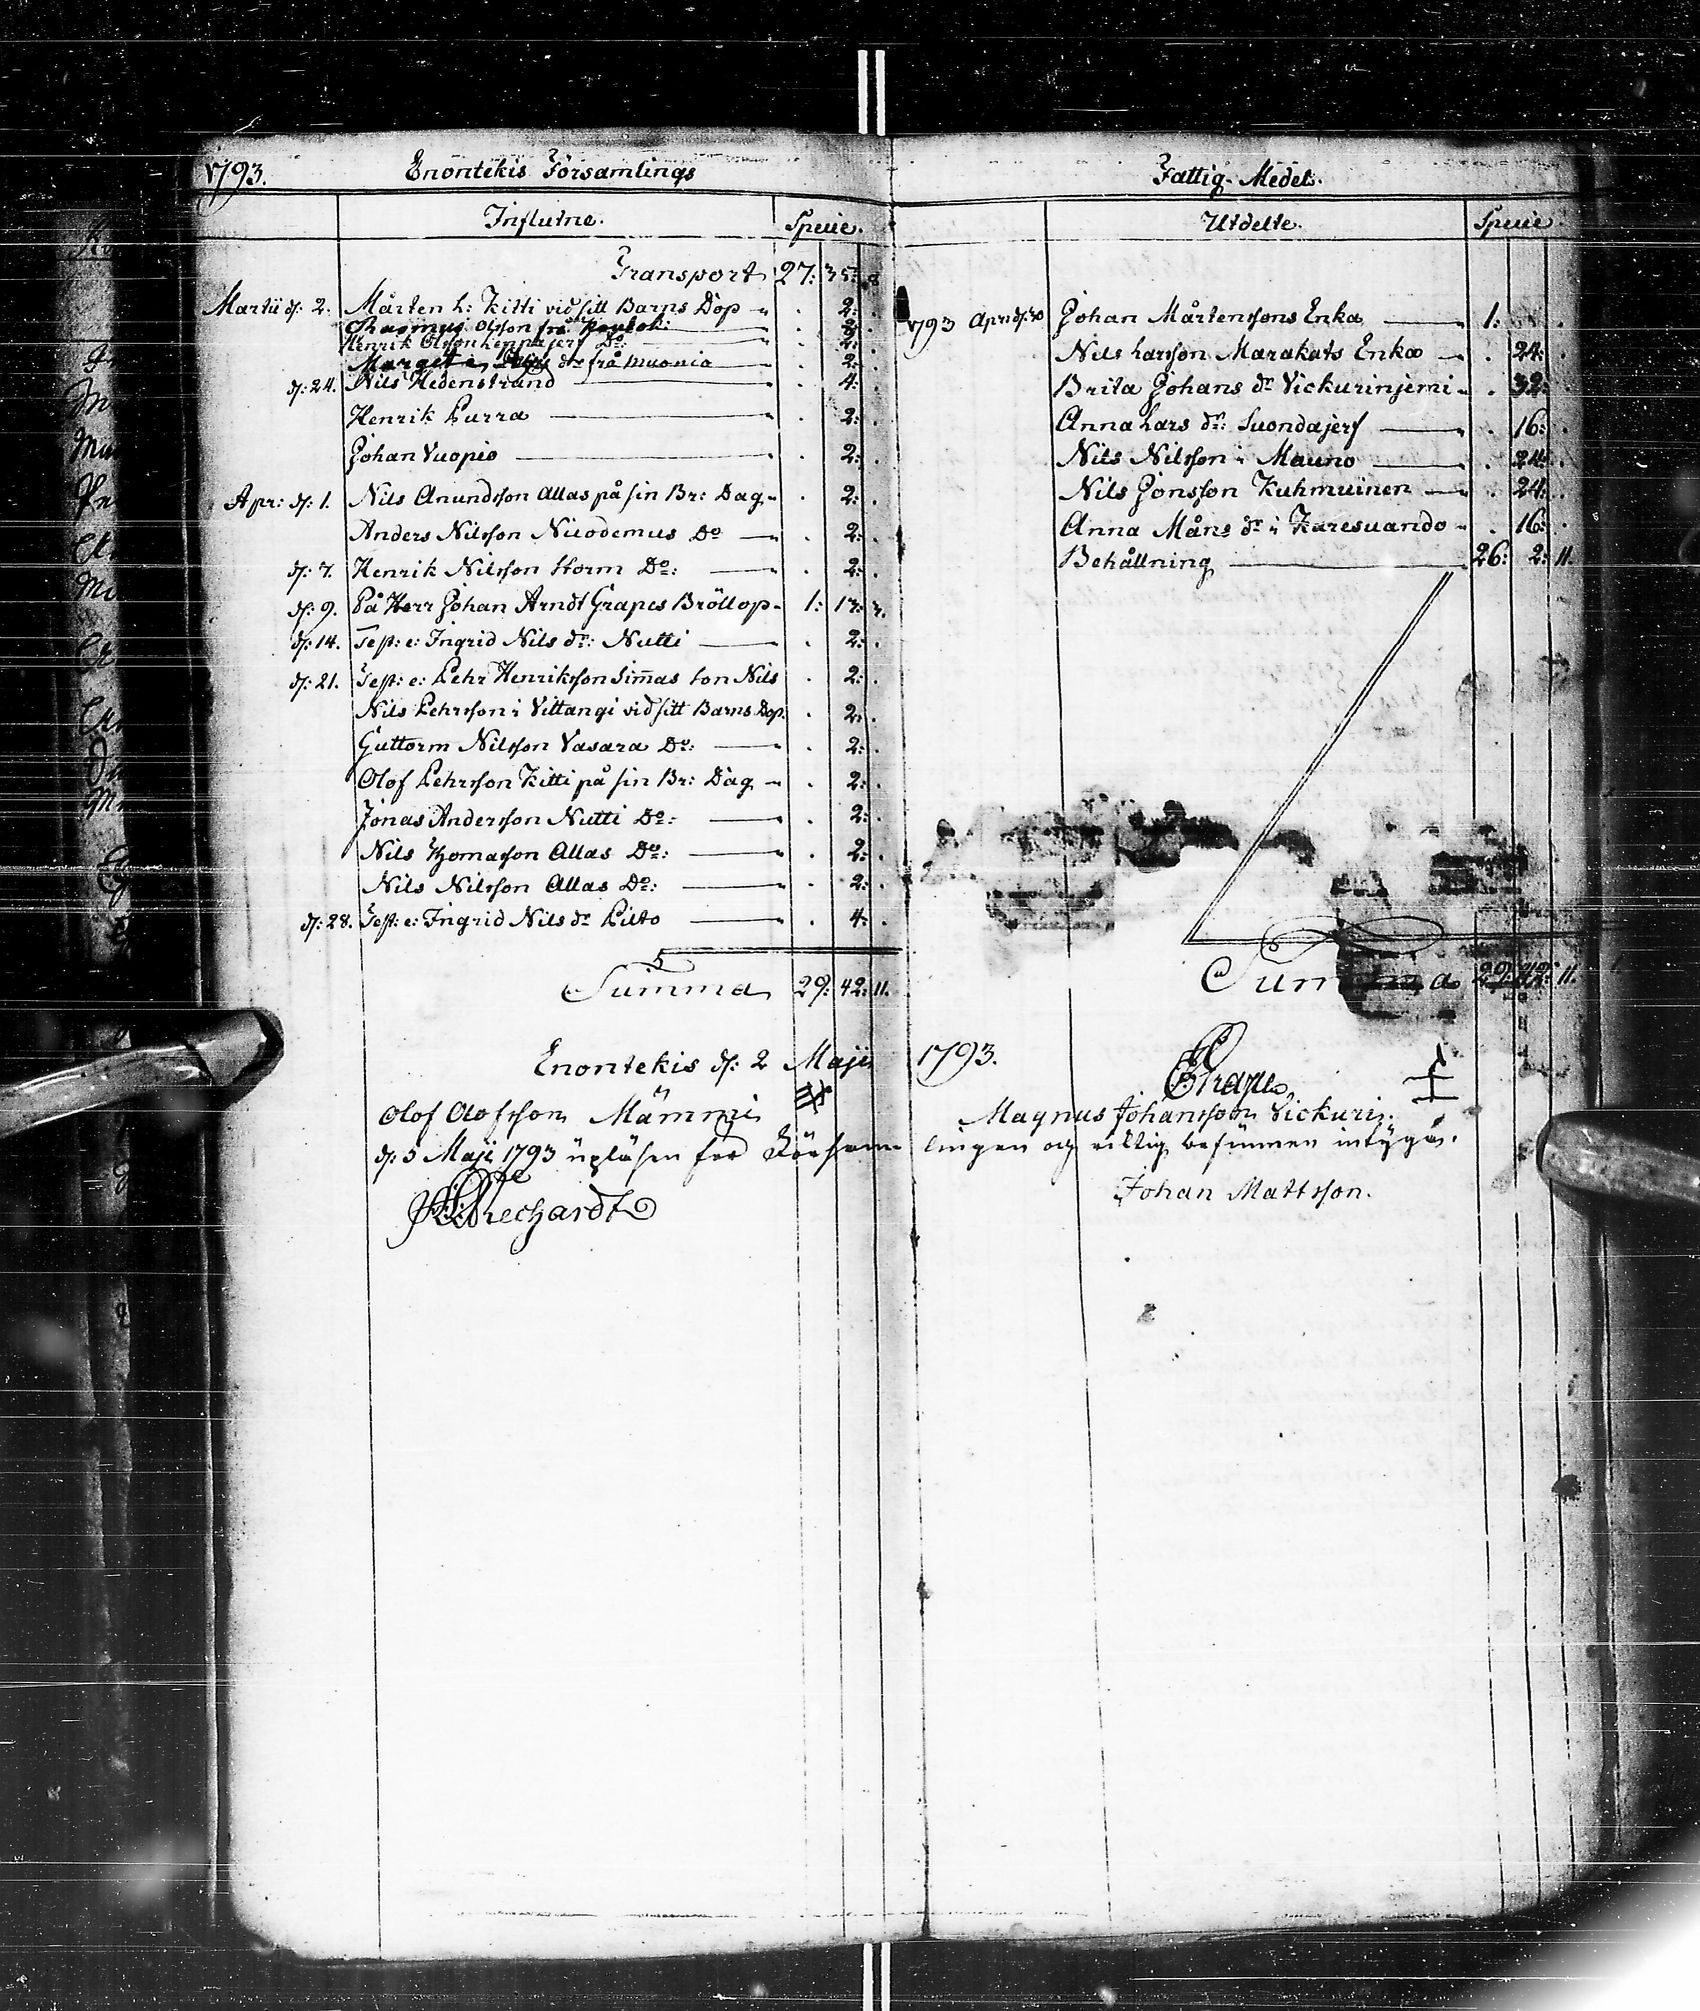 1793. Enontekis Församlings
Influtne. Specie.
Transport 27: 35: 8
Martii d: 2. Mårten L: Kitti vid sitt Barns Dop 2:
Rasmus Olsson från 2:
Henrik Olsson Leppäjerf Do: 2:
Marget dr från Muonio 2:
d: 24. Nils Hedenstrand 4:
Henrik Purra 2:
Johan Vuopio 2:
Apr: d: 1. Nils Anundsson Allas på sin Br: Dag 2:
Anders Nilsson Nicodemus Do 2:
d: 7. Henrik Nilsson Storm Do: 2:
d: 9. På Herr Johan Arndt Grapes Bröllop 1: 17: 3.
d: 14. Test: e: Ingrid Nils dr: Nutti 2:
d: 21. Test: e: Pehr Henriksson Simmas Son Nils 2:
Nils Pehrsson i Vittangi vid sitt Barns Dop 2:
Guttorm Nilsson Vasara Do: 2:
Olof Pehrsson Kitti på sin Br: Dag 2:
Jonas Andersson Nutti Do: 2:
Nils Thomasson Allas Do: 2:
Nils Nilsson Allas Do: 2:
d: 28. Test: e: Ingrid Nils dr Pilto 4:
Summa 29: 42: 11.
Fattig-Medel.
Utdelte. Specie.
1793 April d: 30 Johan Mårtenssons Enka 1:
Nils Larsson Marakats Enka 24:
Brita Johans dr Vickurinjemi 32:
Anna Lars dr: Suondajerf 16:
Nils Nilsson i Mauno 24:
Nils Jonsson Kuhmuinen 24:
Anna Måns dr i Karesuando 16:
Behållning 26: 2: 11.
Summa 29: 42: 11.
Enontekis d: 2 Maji 1793.
E Grape
Olof Olofsson Mämmi Magnus Johansson Vickuri.
d: 5 Maji 1793 upläsen för Församlingen och riktig befunnen intygas.
Johan Mattsson.